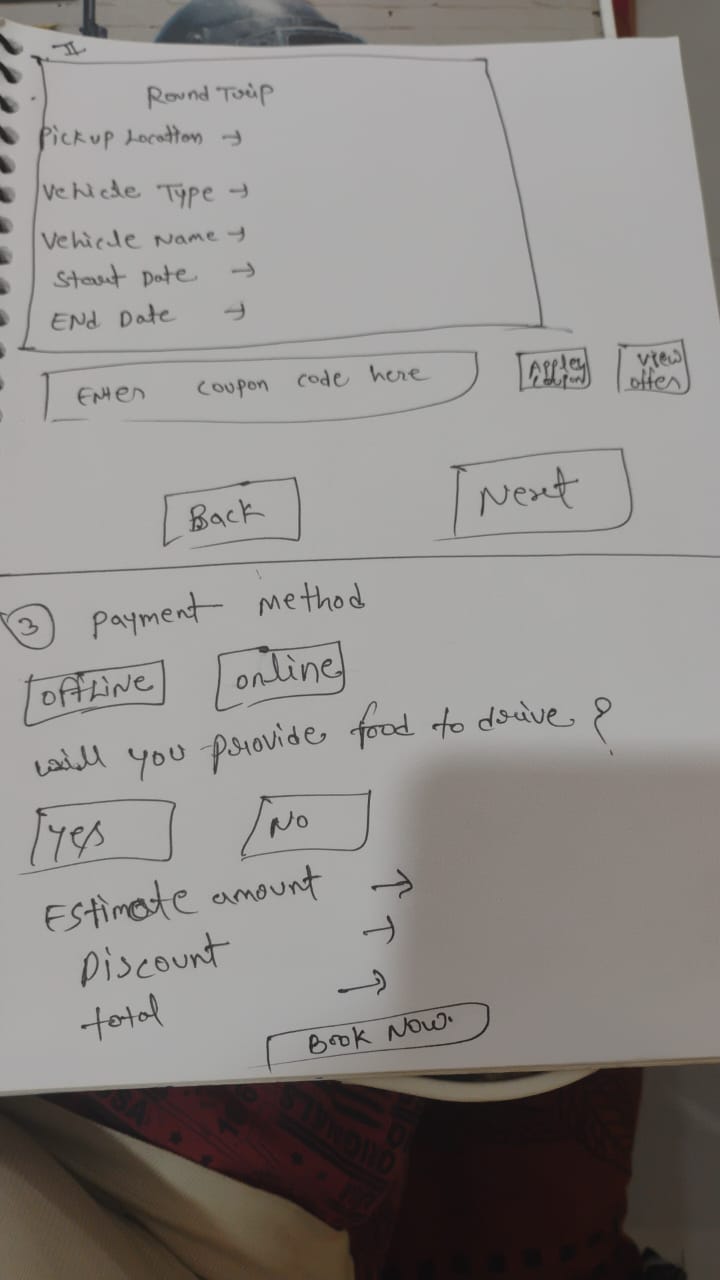 II
Round Trip
Pickup Location →
Vehicle Type →
Vehicle Name →
Start Date →
End Date →
Enter coupon code here
Apply
coupon
view
offer
Back
Next
3 payment method
offLine
online
will you provide food to drive ?
Yes
No
Estimate amount →
Discount →
total →
Book Now.
ORIGINALS